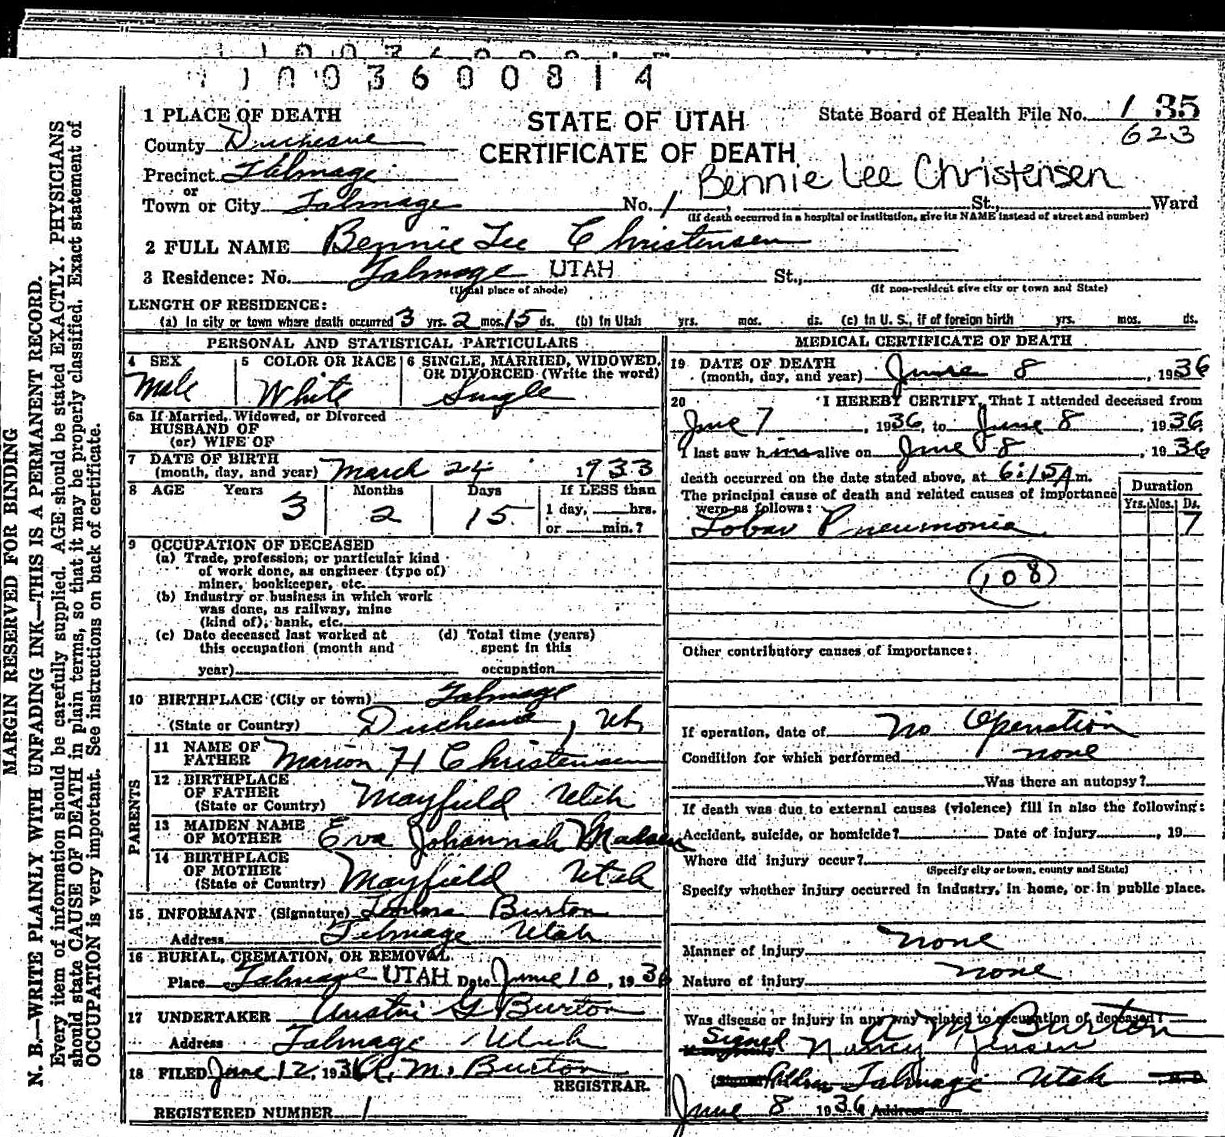 11003600814
1 PLACE OF DEATH
STATE OF UTAH
CERTIFICATE OF DEATH
State Board of Health File No. 1 35
623
County Duchesne
Precinct Talmage
or
Town or City Talmage No. 1, St., Ward
Bennie Lee Christensen
(If death occurred in a hospital or institution, give its NAME instead of street and number)
2 FULL NAME Bennie Lee Christensen
3 Residence: No. Talmage UTAH St.,
(Usual place of abode) (If non-resident give city or town and State)
LENGTH OF RESIDENCE:
(a) In city or town where death occurred 3 yrs. 2 mos. 15 ds. (b) In Utah yrs. mos. ds. (c) In U. S., if of foreign birth yrs. mos. ds.
PERSONAL AND STATISTICAL PARTICULARS
4 SEX Male
5 COLOR OR RACE White
6 SINGLE, MARRIED, WIDOWED, OR DIVORCED (Write the word) Single
6a If Married, Widowed, or Divorced
HUSBAND OF
(or) WIFE OF
7 DATE OF BIRTH
(month, day, and year) March 24 1933
8 AGE Years Months Days If LESS than
3 2 15 1 day, hrs.
or min.?
9 OCCUPATION OF DECEASED
(a) Trade, profession, or particular kind
of work done, as engineer (type of)
miner, bookkeeper, etc.
(b) Industry or business in which work
was done, as railway, mine
(kind of), bank, etc.
(c) Date deceased last worked at
this occupation (month and
year)
(d) Total time (years)
spent in this
occupation
10 BIRTHPLACE (City or town) Talmage
(State or Country) Duchesne, Ut
PARENTS
11 NAME OF
FATHER Marion H Christensen
12 BIRTHPLACE
OF FATHER
(State or Country) Mayfield Utah
13 MAIDEN NAME
OF MOTHER Eva Johannah Madsen
14 BIRTHPLACE
OF MOTHER
(State or Country) Mayfield Utah
15 INFORMANT (Signature) Burton
Address Talmage Utah
16 BURIAL, CREMATION, OR REMOVAL
Place Talmage UTAH Date June 10, 1936
17 UNDERTAKER Austin G Burton
Address Talmage Utah
18 FILED June 12, 1936 A. M. Burton
REGISTRAR.
REGISTERED NUMBER 1
MEDICAL CERTIFICATE OF DEATH
19 DATE OF DEATH
(month, day, and year) June 8, 1936
20 I HEREBY CERTIFY, That I attended deceased from
June 7, 1936 to June 8, 1936
I last saw him alive on June 8, 1936
death occurred on the date stated above, at 6:15 A m.
The principal cause of death and related causes of importance
were as follows:
Duration
Yrs. Mos. Ds.
Lobar Pneumonia 7
108
Other contributory causes of importance:
If operation, date of No Operation
Condition for which performed none
Was there an autopsy?
If death was due to external causes (violence) fill in also the following:
Accident, suicide, or homicide? Date of injury, 19
Where did injury occur?
(Specify city or town, county and State)
Specify whether injury occurred in industry, in home, or in public place.
Manner of injury none
Nature of injury none
Was disease or injury in any way related to occupation of deceased?
A M Burton
Signed Nancy Jensen
Address Talmage Utah
June 8 1936 Address
MARGIN RESERVED FOR BINDING
N. B.—WRITE PLAINLY WITH UNFADING INK—THIS IS A PERMANENT RECORD.
Every item of information should be carefully supplied. AGE should be stated EXACTLY. PHYSICIANS
should state CAUSE OF DEATH in plain terms, so that it may be properly classified. Exact statement of
OCCUPATION is very important. See instructions on back of certificate.